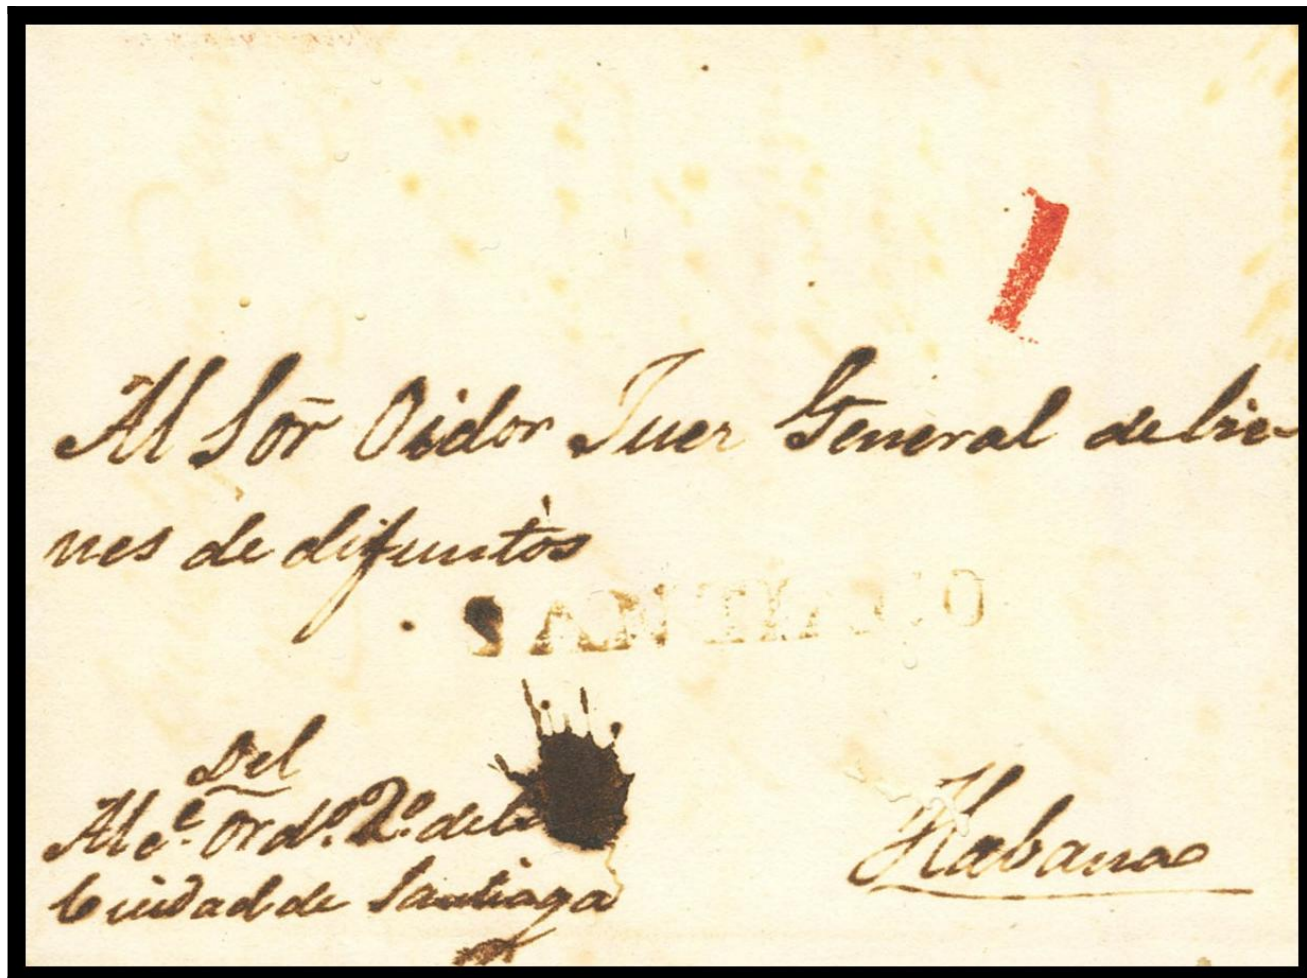 1
Al Sor̃ Oidor Juez General de bie-
nes de difuntos
SANTIAGO
Del
Alce. Ordº. 2º. de la
Ciudad de Santiago
Habana